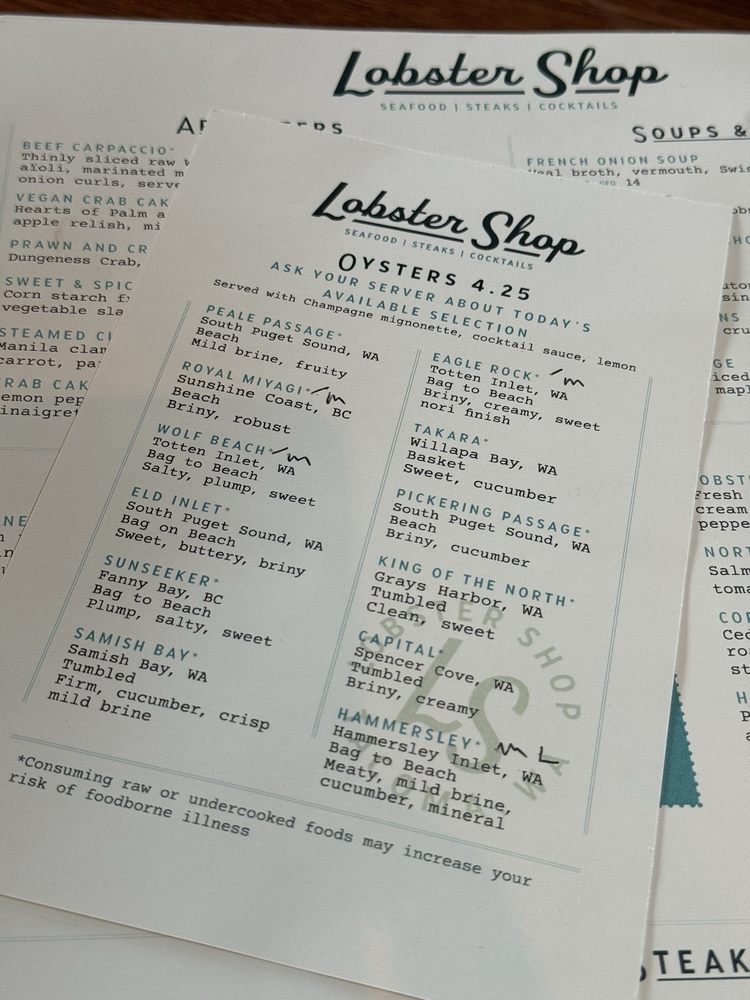 Lobster Shop
SEAFOOD | STEAKS | COCKTAILS
SOUPS &
BEEF CARPACCIO*
Thinly sliced raw
aïoli, marinated
onion curls,
VEGAN CRAB
Hearts of Palm
apple relish,
PRAWN AND
Dungeness Crab,
SWEET &
Corn starch
vegetable
STEAMED
Manila
carrot,
CRAB
FRENCH ONION SOUP
broth, vermouth,
14
Lobster Shop
SEAFOOD | STEAKS | COCKTAILS
OYSTERS 4.25
ASK YOUR SERVER ABOUT TODAY'S
AVAILABLE SELECTION
Served with Champagne mignonette, cocktail sauce, lemon
PEALE PASSAGE*
South Puget Sound, WA
Beach
Mild brine, fruity
ROYAL MIYAGI* ✓m
Sunshine Coast, BC
Beach
Briny, robust
WOLF BEACH* ✓m
Totten Inlet, WA
Bag to Beach
Salty, plump, sweet
ELD INLET*
South Puget Sound, WA
Bag on Beach
Sweet, buttery, briny
SUNSEEKER*
Fanny Bay, BC
Bag to Beach
Plump, salty, sweet
SAMISH BAY*
Samish Bay, WA
Tumbled
Firm, cucumber, crisp
mild brine
EAGLE ROCK* ✓m
Totten Inlet, WA
Bag to Beach
Briny, creamy, sweet
nori finish
TAKARA*
Willapa Bay, WA
Basket
Sweet, cucumber
PICKERING PASSAGE*
South Puget Sound, WA
Beach
Briny, cucumber
KING OF THE NORTH*
Grays Harbor, WA
Tumbled
Clean, sweet
CAPITAL*
Spencer Cove, WA
Tumbled
Briny, creamy
HAMMERSLEY* m L
Hammersley Inlet, WA
Bag to Beach
Meaty, mild brine,
cucumber, mineral
LOBSTER SHOP
LS
*Consuming raw or undercooked foods may increase your
risk of foodborne illness